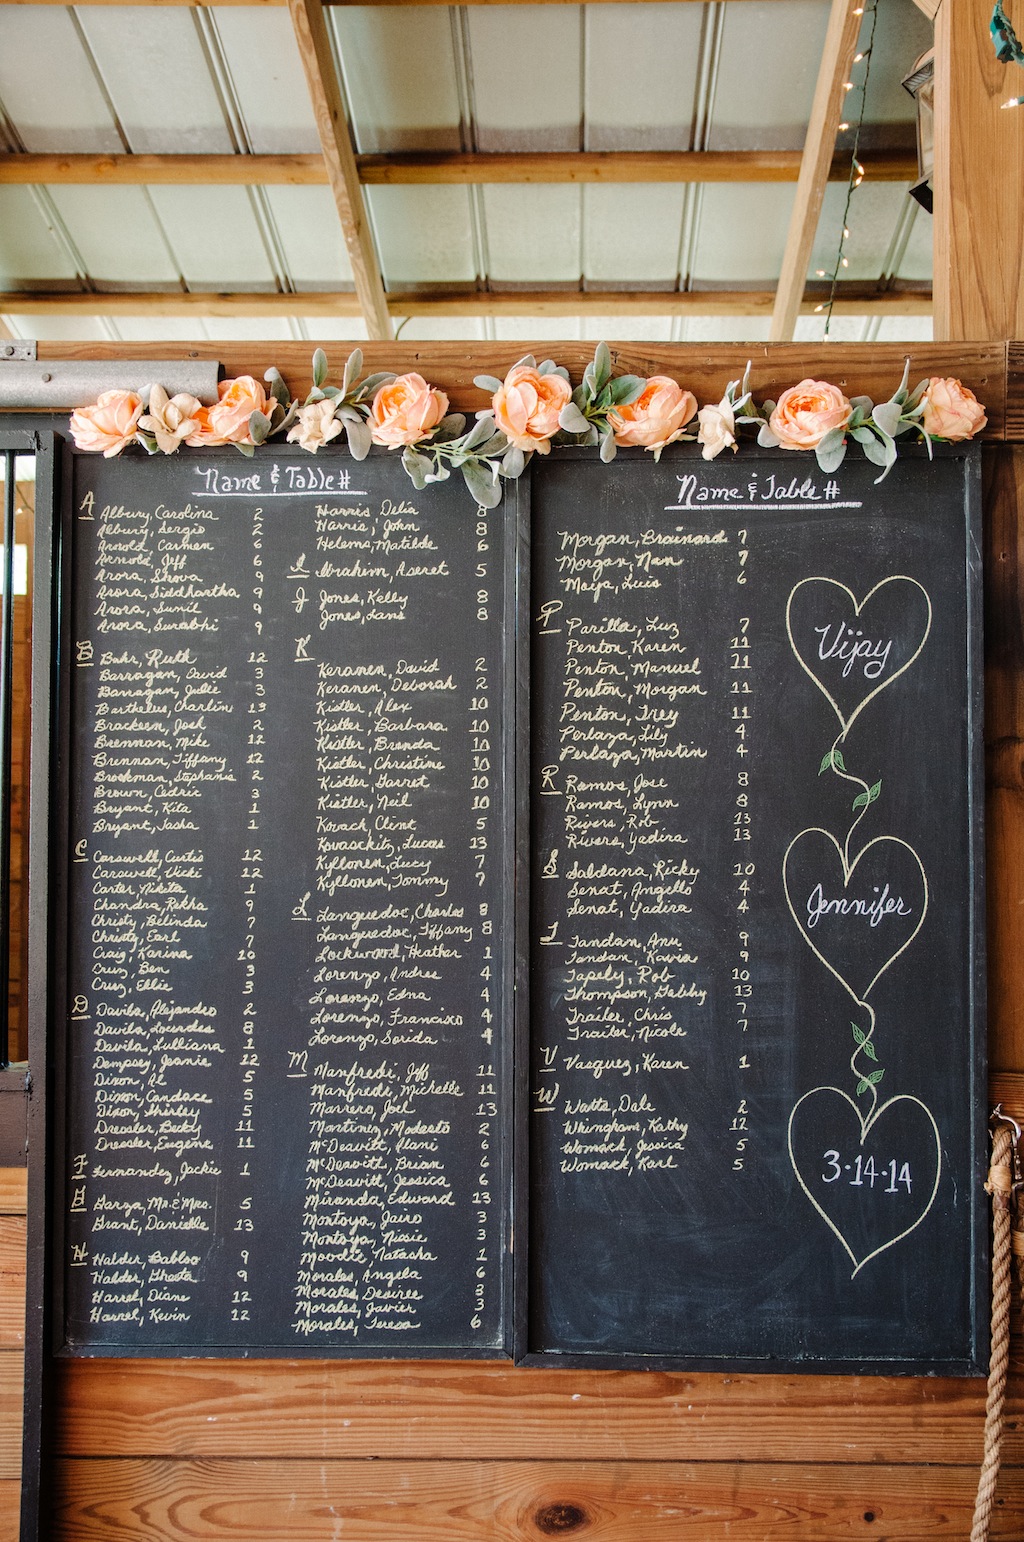 Name & Table #
A
Albury, Carolina 2
Albury, Sergio 2
Arnold, Carmen 6
Arnold, Jeff 6
Arora, Shova 9
Arora, Siddhartha 9
Arora, Sunil 9
Arora, Surabhi 9
B
Bahr, Ruth 12
Barragan, David 3
Barragan, Julie 3
Barthelus, Charlin 13
Brackeen, Josh 2
Brennan, Mike 12
Brennan, Tiffany 12
Brockman, Stephanie 2
Brown, Cedric 3
Bryant, Kita 1
Bryant, Tasha 1
C
Carswell, Curtis 12
Carswell, Vicki 12
Carter, Nikita 1
Chandra, Rekha 9
Christy, Belinda 7
Christy, Earl 7
Craig, Karina 10
Cruz, Ben 3
Cruz, Ellie 3
D
Davila, Alejandro 2
Davila, Lourdes 8
Davila, Lilliana 1
Dempsey, Jeanie 12
Dixon, Al 5
Dixon, Candace 5
Dixon, Shirley 5
Dressler, Becky 11
Dressler, Eugene 11
F
Fernandez, Jackie 1
G
Garza, Mr. & Mrs. 5
Grant, Danielle 13
H
Halder, Babloo 9
Halder, Shesta 9
Harrel, Diane 12
Harrel, Kevin 12
Harris, Delia 8
Harris, John 8
Helems, Matilde 6
I
Ibrahim, Aseret 5
J
Jones, Kelly 8
Jones, Lans 8
K
Keranen, David 2
Keranen, Deborah 2
Kistler, Alex 10
Kistler, Barbara 10
Kistler, Brenda 10
Kistler, Christine 10
Kistler, Garret 10
Kistler, Neil 10
Kovach, Clint 5
Kovaschitz, Lucas 13
Kyllonen, Lucy 7
Kyllonen, Tommy 7
L
Languedoc, Charles 8
Languedoc, Tiffany 8
Lockwood, Heather 1
Lorenzo, Andres 4
Lorenzo, Edna 4
Lorenzo, Francisco 4
Lorenzo, Sorida 4
M
Manfredi, Jeff 11
Manfredi, Michelle 11
Marrero, Joel 13
Martinez, Modesto 2
McDeavitt, Alani 6
McDeavitt, Brian 6
McDeavitt, Jessica 6
Miranda, Edward 13
Montoya, Jairo 3
Montoya, Nixie 3
Moodie, Natasha 1
Morales, Angela 6
Morales, Desiree 3
Morales, Javier 3
Morales, Teresa 6
Name & Table #
Morgan, Brainard 7
Morgan, Nam 7
Moya, Luis 6
P
Parilla, Luz 7
Penton, Karen 11
Penton, Manuel 11
Penton, Morgan 11
Penton, Trey 11
Perlaza, Lily 4
Perlaza, Martin 4
R
Ramos, Jose 8
Ramos, Lynn 8
Rivers, Rob 13
Rivers, Yadira 13
S
Saldana, Ricky 10
Senat, Angello 4
Senat, Yadira 4
T
Tandan, Anu 9
Tandan, Kavia 9
Tapsley, Rob 10
Thompson, Gabby 13
Trailer, Chris 7
Trailer, Nicole 7
V
Vasquez, Karen 1
W
Watts, Dale 2
Whingham, Kathy 12
Womack, Jessica 5
Womack, Karl 5
Vijay
Jennifer
3·14·14